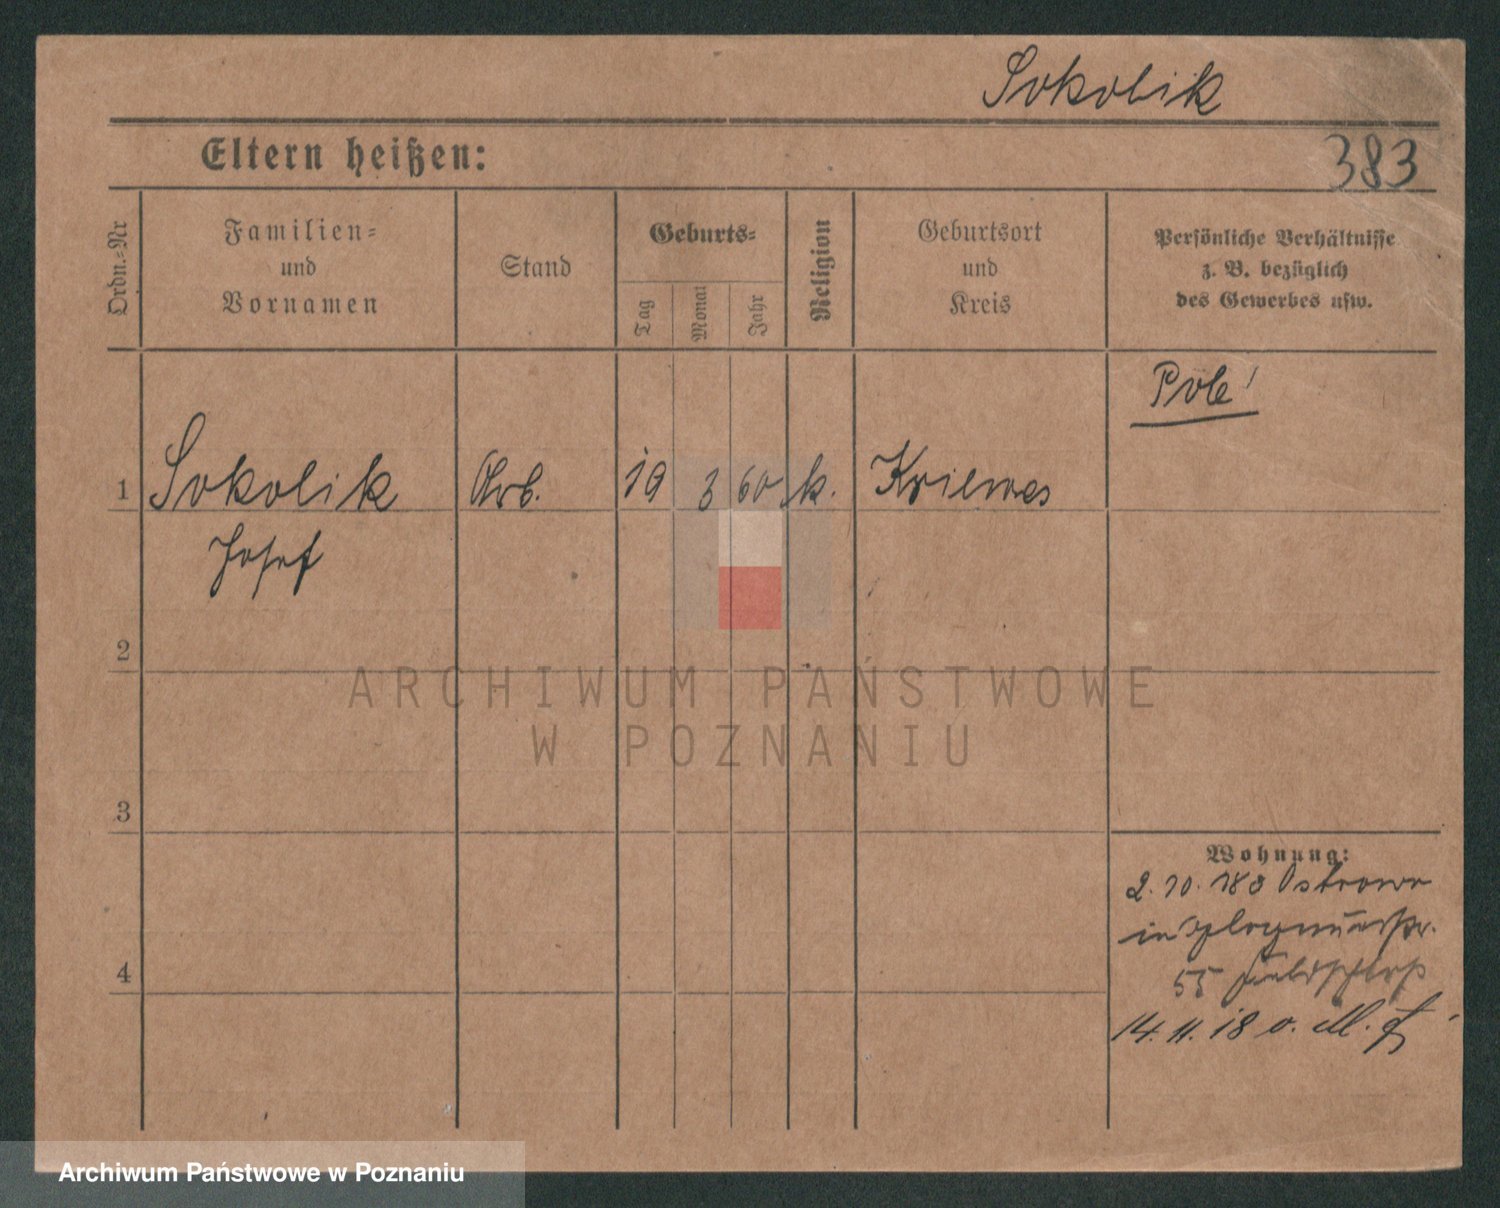 Sokolik
Eltern heißen:
383
Ordn.=Nr
Familien=
und
Vornamen
Stand
Geburts=
Tag
Monat
Jahr
Religion
Geburtsort
und
Kreis
Persönliche Verhältnisse
z. B. bezüglich
des Gewerbes usw.
Pole!
1 Sokolik Arb. 19 3 60 k. Kriewes
Josef
2
ARCHIWUM PAŃSTWOWE
W POZNANIU
3
Wohnung:
2. 10. 183 Ostrowo
in
4
55
14. 11. 18 o. M.
Archiwum Państwowe w Poznaniu